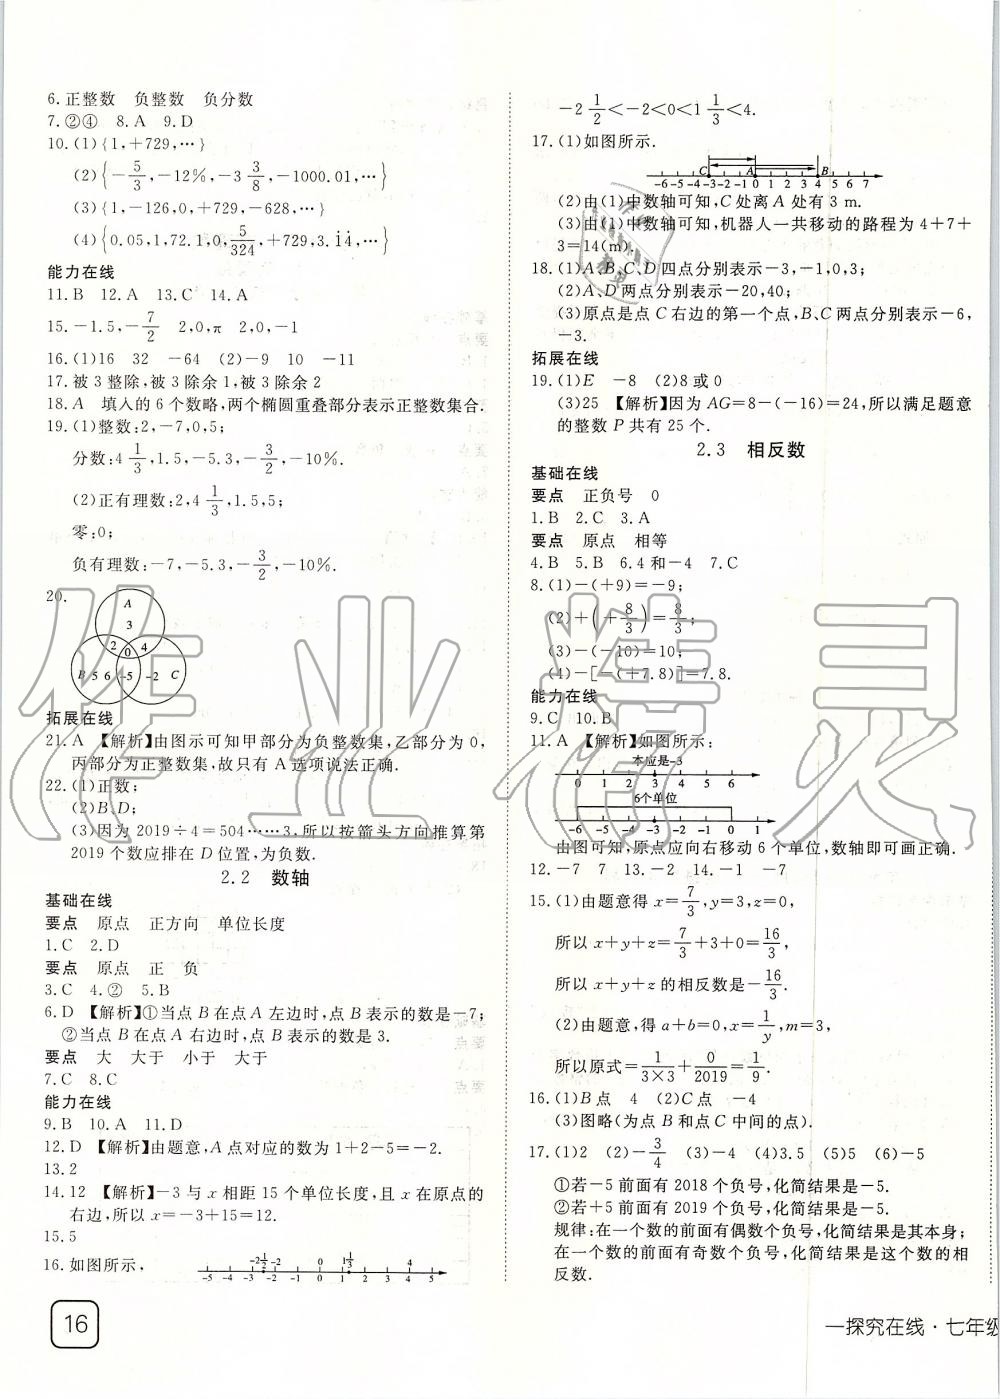 6.正整数 负整数 负分数
7.②④ 8.A 9.D
10.(1){1,+729,…}
(2){-5/3,-12%,-3 3/8,-1000.01,…}
(3){1,-126,0,+729,-628,…}
(4){0.05,1,72.1,0,5/324,+729,3.1̇4̇,…}
能力在线
11.B 12.A 13.C 14.A
15.-1.5,-7/2 2,0,π 2,0,-1
16.(1)16 32 -64 (2)-9 10 -11
17.被3整除,被3除余1,被3除余2
18.A 填入的6个数略,两个椭圆重叠部分表示正整数集合.
19.(1)整数:2,-7,0,5;
分数:4 1/3,1.5,-5.3,-3/2,-10%.
(2)正有理数:2,4 1/3,1.5,5;
零:0;
负有理数:-7,-5.3,-3/2,-10%.
20.
A
3
2 4
0
B 5 6 -5 -2 C
拓展在线
21.A 【解析】由图示可知甲部分为负整数集,乙部分为0,
丙部分为正整数集,故只有A选项说法正确.
22.(1)正数;
(2)B、D;
(3)因为2019÷4=504……3,所以按箭头方向推算第
2019个数应排在D位置,为负数.
2.2 数轴
基础在线
要点 原点 正方向 单位长度
1.C 2.D
要点 原点 正 负
3.C 4.② 5.B
6.D 【解析】①当点B在点A左边时,点B表示的数是-7;
②当点B在点A右边时,点B表示的数是3.
要点 大 大于 小于 大于
7.C 8.C
能力在线
9.B 10.A 11.D
12.D 【解析】由题意,A点对应的数为1+2-5=-2.
13.2
14.12 【解析】-3与x相距15个单位长度,且x在原点的
右边,所以x=-3+15=12.
15.5
16.如图所示,
-2 1/2 -2 1 1/3 4
-5 -4 -3 -2 -1 0 1 2 3 4 5
16
-2 1/2<-2<0<1 1/3<4.
17.(1)如图所示.
C A B
-6-5-4-3-2-1 0 1 2 3 4 5 6 7
(2)由(1)中数轴可知,C处离A处有3 m.
(3)由(1)中数轴可知,机器人一共移动的路程为4+7+
3=14(m).
18.(1)A、B、C、D四点分别表示-3,-1,0,3;
(2)A、D两点分别表示-20,40;
(3)原点是点C右边的第一个点,B、C两点分别表示-6,
-3.
拓展在线
19.(1)E -8 (2)8或0
(3)25 【解析】因为AG=8-(-16)=24,所以满足题意
的整数P共有25个.
2.3 相反数
基础在线
要点 正负号 0
1.B 2.C 3.A
要点 原点 相等
4.B 5.B 6.4和-4 7.C
8.(1)-(+9)=-9;
(2)+(+8/3)=8/3;
(3)-(-10)=10;
(4)-[-(+7.8)]=7.8.
能力在线
9.C 10.B
11.A 【解析】如图所示:
本应是-3
0 1 2 3 4 5 6
6个单位
-6 -5 -4 -3 -2 -1 0 1
由图可知,原点应向右移动6个单位,数轴即可画正确.
12.-7 7 13.-2 14.-1 -7
15.(1)由题意得x=7/3,y=3,z=0,
所以x+y+z=7/3+3+0=16/3,
所以x+y+z的相反数是-16/3.
(2)由题意,得a+b=0,x=1/y,m=3,
所以原式=1/(3×3)+0/2019=1/9.
16.(1)B点 4 (2)C点 -4
(3)图略(为点B和点C中间的点).
17.(1)2 (2)-3/4 (3)-4 (4)3.5 (5)5 (6)-5
①若-5前面有2018个负号,化简结果是-5.
②若+5前面有2019个负号,化简结果是-5.
规律:在一个数的前面有偶数个负号,化简结果是其本身;
在一个数的前面有奇数个负号,化简结果是这个数的相
反数.
一探究在线·七年级
作业精灵